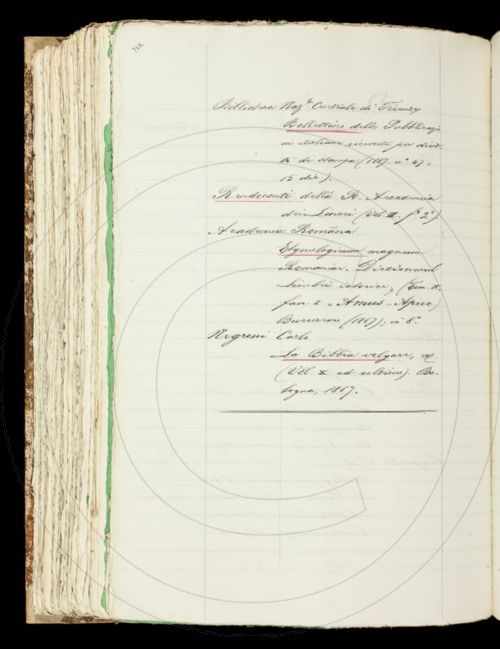 Biblioteca Naz.le Centrale di Firenze
Bollettino delle Pubblicazi
ni italiane ricevute per dirit-
to di stampa (1887. n.° 47.
15 dic.);
Rendiconti della R. Accademia
dei Lincei (Vol. III. f. 2°)
Academia Româna
Etymologicum magnum
Romaniae. Dictionarul
limbii istorice, (Tom. II.
fasc. I. Amus-Apuc)
Bucuresci (1887); in 8.
Negroni Carlo
La Bibbia volgare,
(Vol. X. ed ultimo). Bo-
logna, 1887.